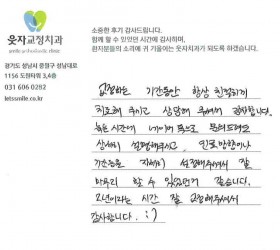 소중한 후기 감사드립니다.
함께 할 수 있었던 시간에 감사하며,
환자분들의 소리에 귀 기울이는 웃자교정치과가 되도록 하겠습니다.
웃자교정치과
smile orthodontic clinic
경기도 성남시 중원구 성남대로
1156 도원타워 3,4층
031 606 0282
letssmile.co.kr
교정하는 기간동안 항상 친절하게
치료해 주시고 상담해 주셔서 감사합니다.
늦은 시간에 네이버 톡으로 문의드려도
상세히 설명해주시고, 진료방향이나
기간등을 자세히 설명해주셔서 잘
마무리 할 수 있었던거 같습니다.
2년이라는 시간 잘 교정해주셔서
감사합니다. :)